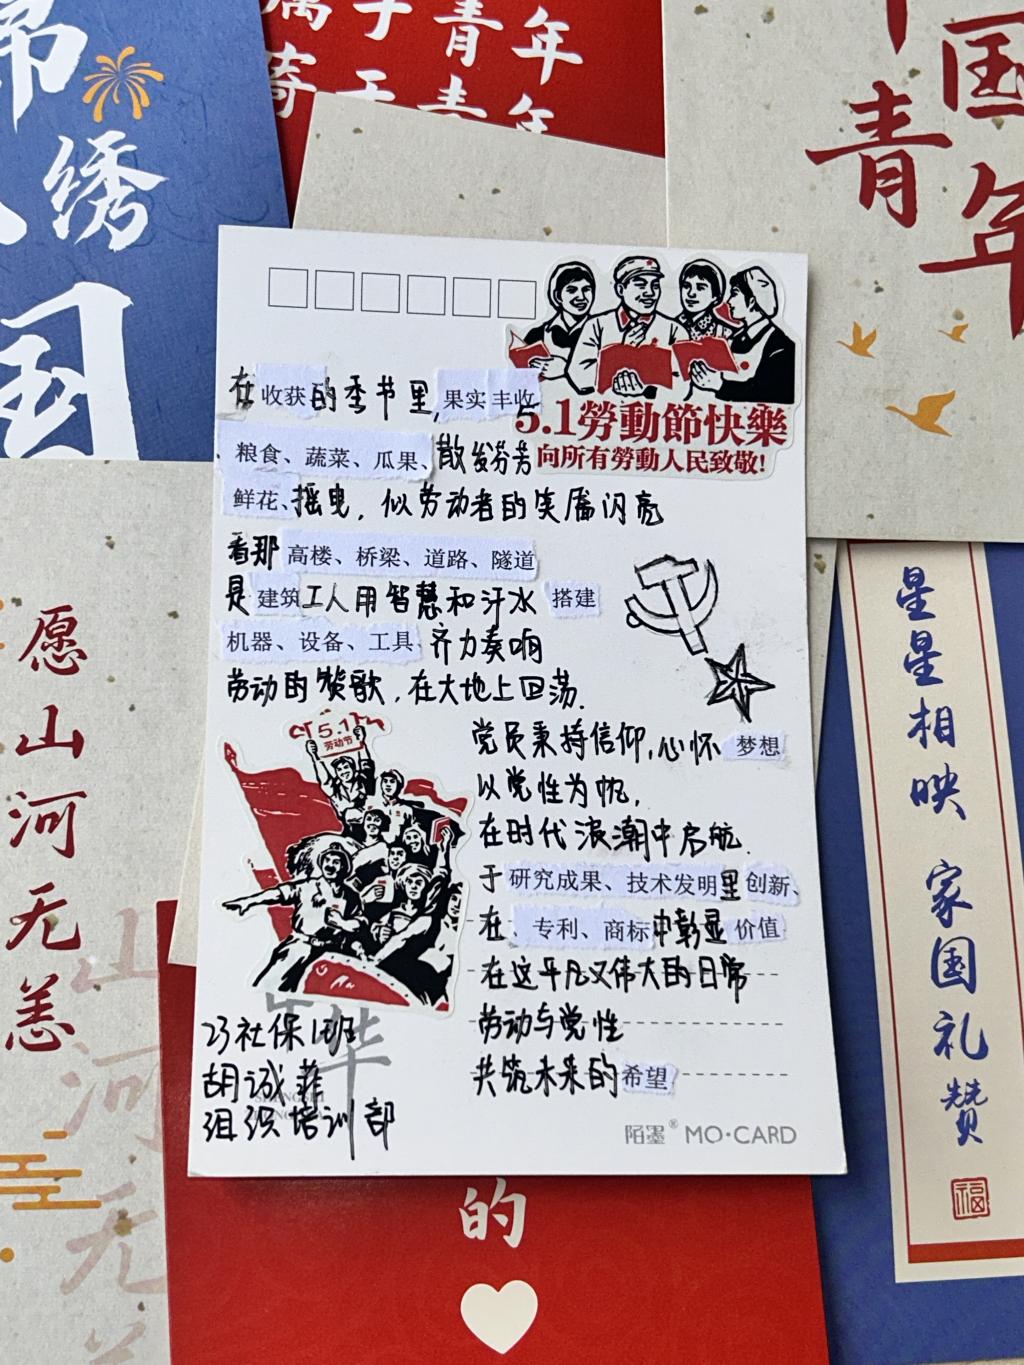 锦
绣
国
属于青年
寄于青年
中国
青年
在收获的季节里,果实丰收
粮食、蔬菜、瓜果、散发芬芳
鲜花、摇曳，似劳动者的笑靥闪亮
5.1勞動節快樂
向所有勞動人民致敬!
看那高楼、桥梁、道路、隧道
是建筑工人用智慧和汗水搭建
机器、设备、工具齐力奏响
劳动的赞歌,在大地上回荡.
5.1
劳动节
党员秉持信仰,心怀梦想
以党性为帆,
在时代浪潮中启航.
于研究成果、技术发明里创新、
在、专利、商标中彰显价值
在这平凡又伟大的日常
劳动与党性
共筑未来的希望
华
23社保1班
胡诚菲
组织培训部
陌墨® MO·CARD
愿山河无恙
山河无
星星相映 家国礼赞
福
的